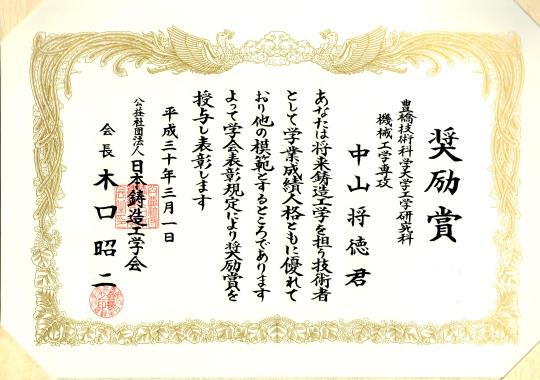 奨励賞
豊橋技術科学大学大学院工学研究科
機械工学専攻
中山将徳君
あなたは将来鋳造工学を担う技術者
として学業成績人格ともに優れて
おり他の模範とするところであります
よって学会表彰規定により奨励賞を
授与し表彰します
平成三十年三月一日
公益社団法人日本鋳造工学会
会長 木口昭二